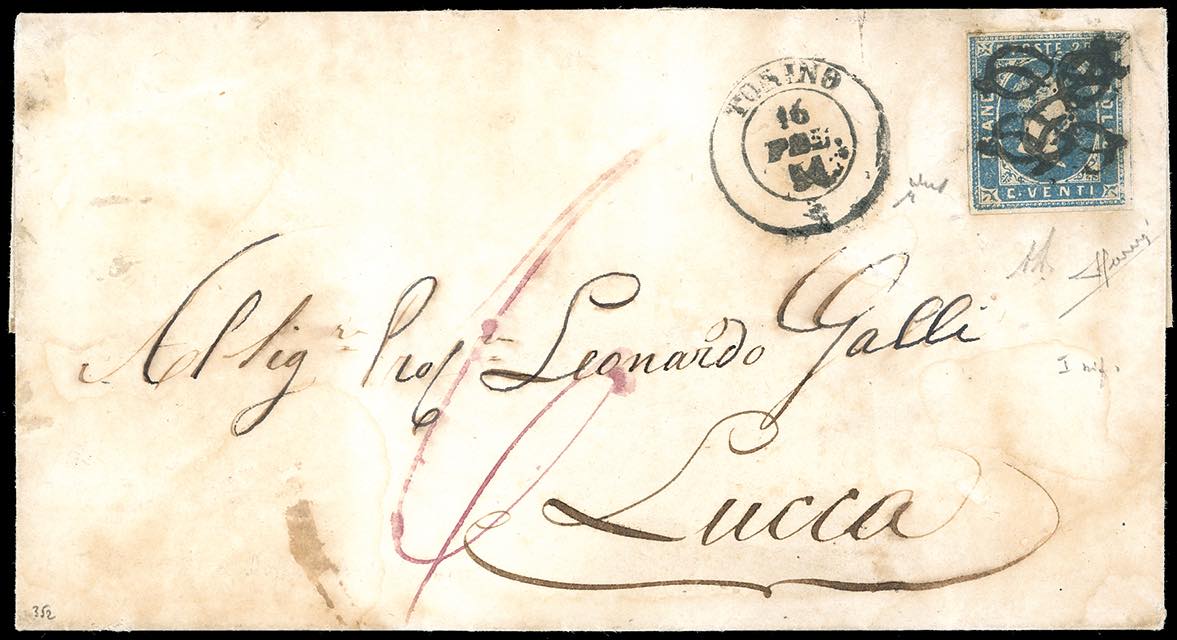 TORINO
16
FBE.
54
C. POSTE 20
FRANCO BOLLO
C. VENTI
Al Sig.r Prof.r Leonardo Galli
Lucca
I rif.
352